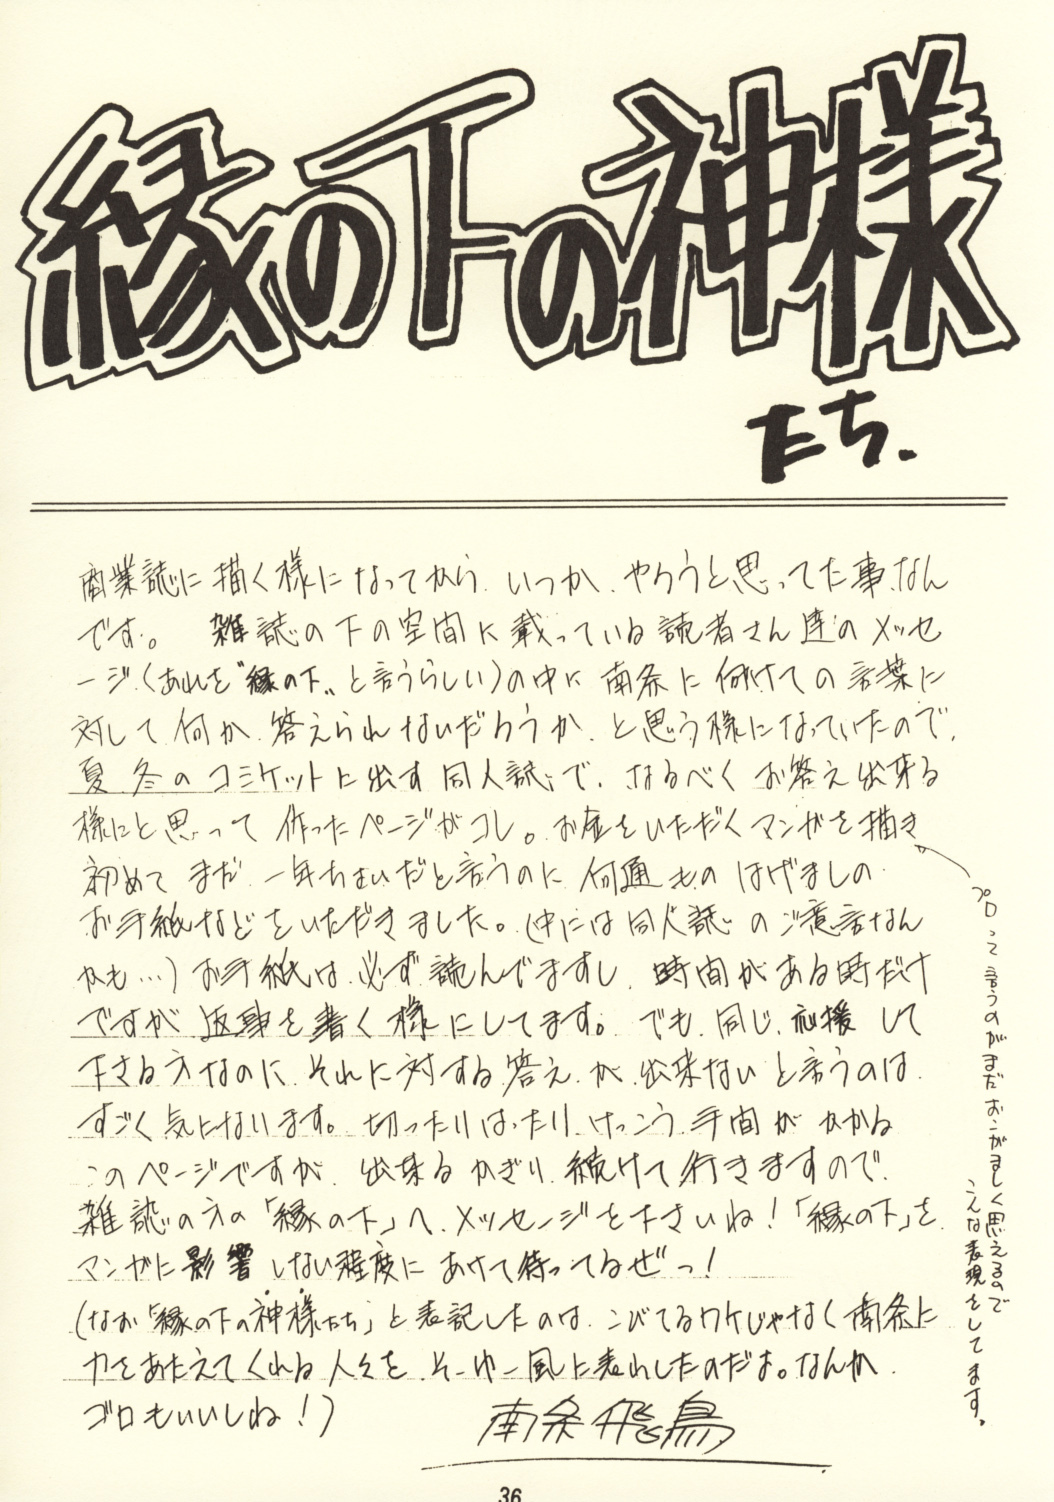 縁の下の神様
たち.
商業誌に描く様になってから、いつか、やろうと思ってた事なん
です。 雑誌の下の空間に載っている読者さん達のメッセ
ージ(あれを〝縁の下〟と言うらしい)の中に南条に向けての言葉に
対して何か答えられないだろうか、と思う様になっていたので、
夏、冬のコミケットに出す同人誌で、なるべくお答え出来る
様にと思って作ったページがコレ。お金をいただくマンガを描き
初めてまだ一年ちょいだと言うのに何通ものはげましの
お手紙などをいただきました。(中には同人誌のご意話なん
かも…)お手紙は必ず読んでますし、時間がある時だけ
ですが返事を書く様にしてます。でも、同じ、応援して
下さる方なのに、それに対する答えが出来ないと言うのは
すごく気になります。切ったりはったりけっこう手間がかかる
このページですが、出来るかぎり続けて行きますので、
雑誌の方の「縁の下」へ、メッセージを下さいね!「縁の下」を
マンガに影響しない程度にあけて待ってるぜっ!
(なお「縁の下の神様たち」と表記したのは、こびてるワケじゃなく南条に
力をあたえてくれる人々を、そーゆー風に表わしたのだよ。なんか
ゴロもいいしね!)
南条飛鳥
プロって言うのがまだおこがましく思えるので
こんな表現をしてます。
36